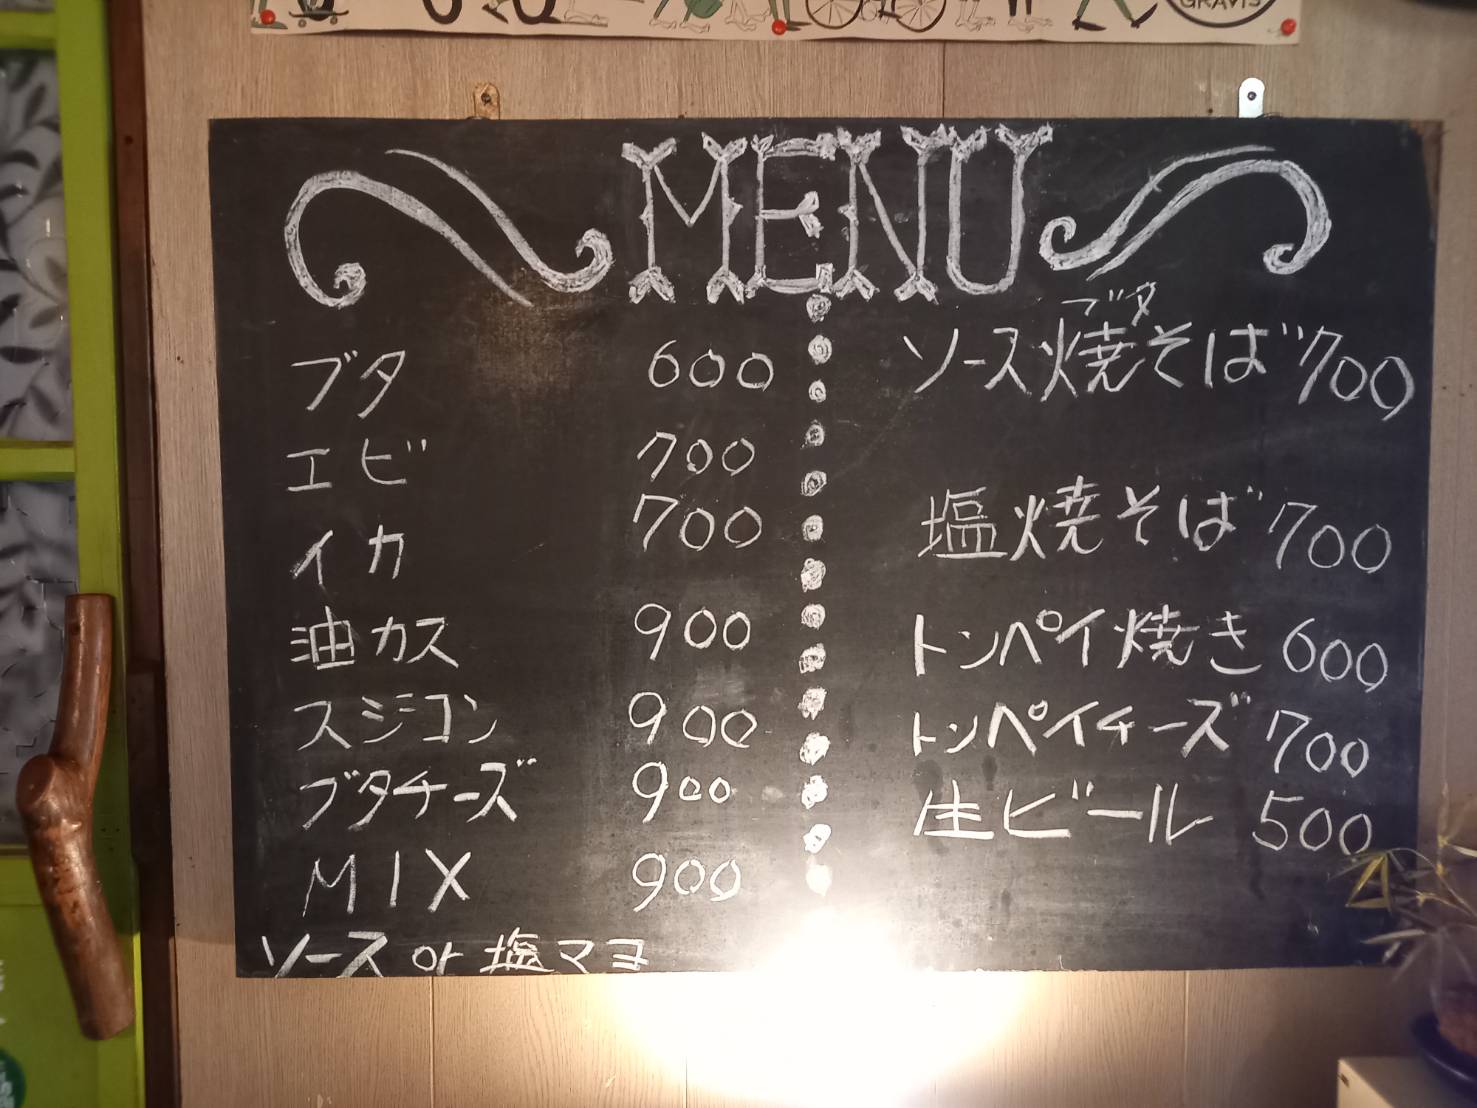 GRAVIS
MENU
ブタ 600
エビ 700
イカ 700
油カス 900
スジコン 900
ブタチーズ 900
MIX 900
ソース or 塩マヨ
ブタ
ソース焼そば 700
塩焼そば 700
トンペイ焼き 600
トンペイチーズ 700
生ビール 500